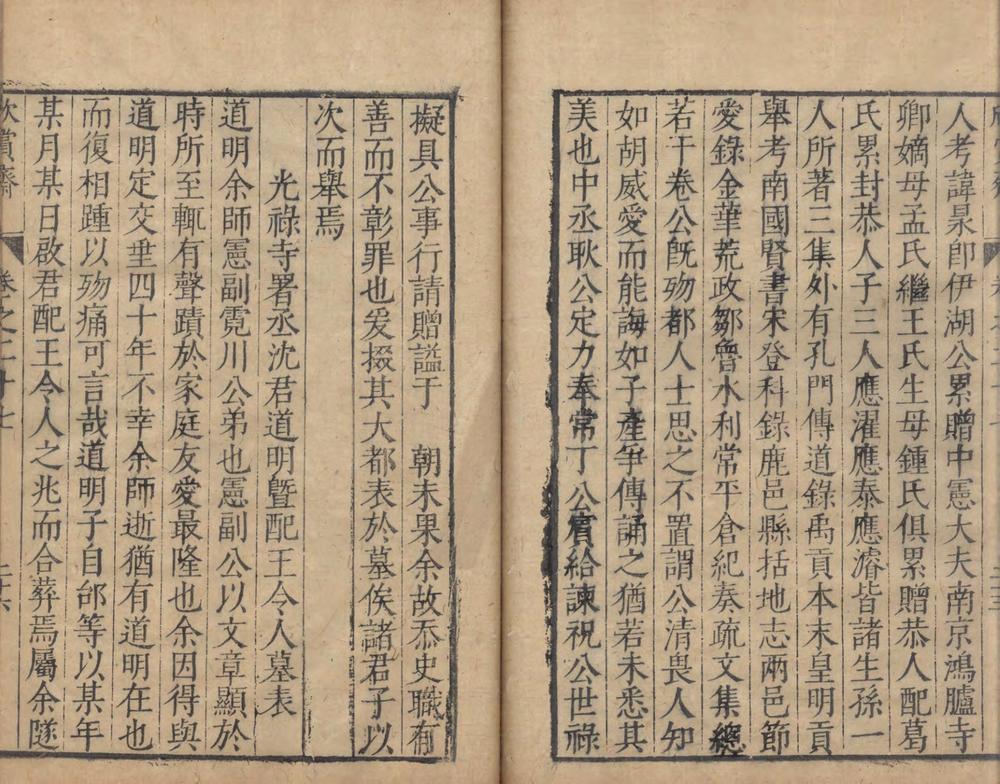 人考諱杲卽伊湖公累贈中憲大夫南京鴻臚寺
卿嫡母孟氏繼王氏生母鍾氏俱累贈恭人配葛
氏累封恭人子三人應濯應泰應濬皆諸生孫一
人所著三集外有孔門傳道錄禹貢本末皇明貢
舉考南國賢書宋登科錄鹿邑縣括地志兩邑節
愛錄金華荒政鄒魯水利常平倉紀奏疏文集總
若干卷公旣歿都人士思之不置謂公清畏人知
如胡威愛而能誨如子產爭傳誦之猶若未悉其
美也中丞耿公定力奉常丁公賓給諫祝公世祿
擬具公事行請贈謚于 朝未果余故忝史職有
善而不彰罪也爰掇其大都表於墓俟諸君子以
次而舉焉
光祿寺署丞沈君道明曁配王令人墓表
道明余師憲副霓川公弟也憲副公以文章顯於
時所至輒有聲蹟於家庭友愛最隆也余因得與
道明定交垂四十年不幸余師逝猶有道明在也
而復相踵以歿痛可言哉道明子自邰等以某年
某月某日啟君配王令人之兆而合葬焉屬余隧
欣賞齋 卷之二十七 二十六